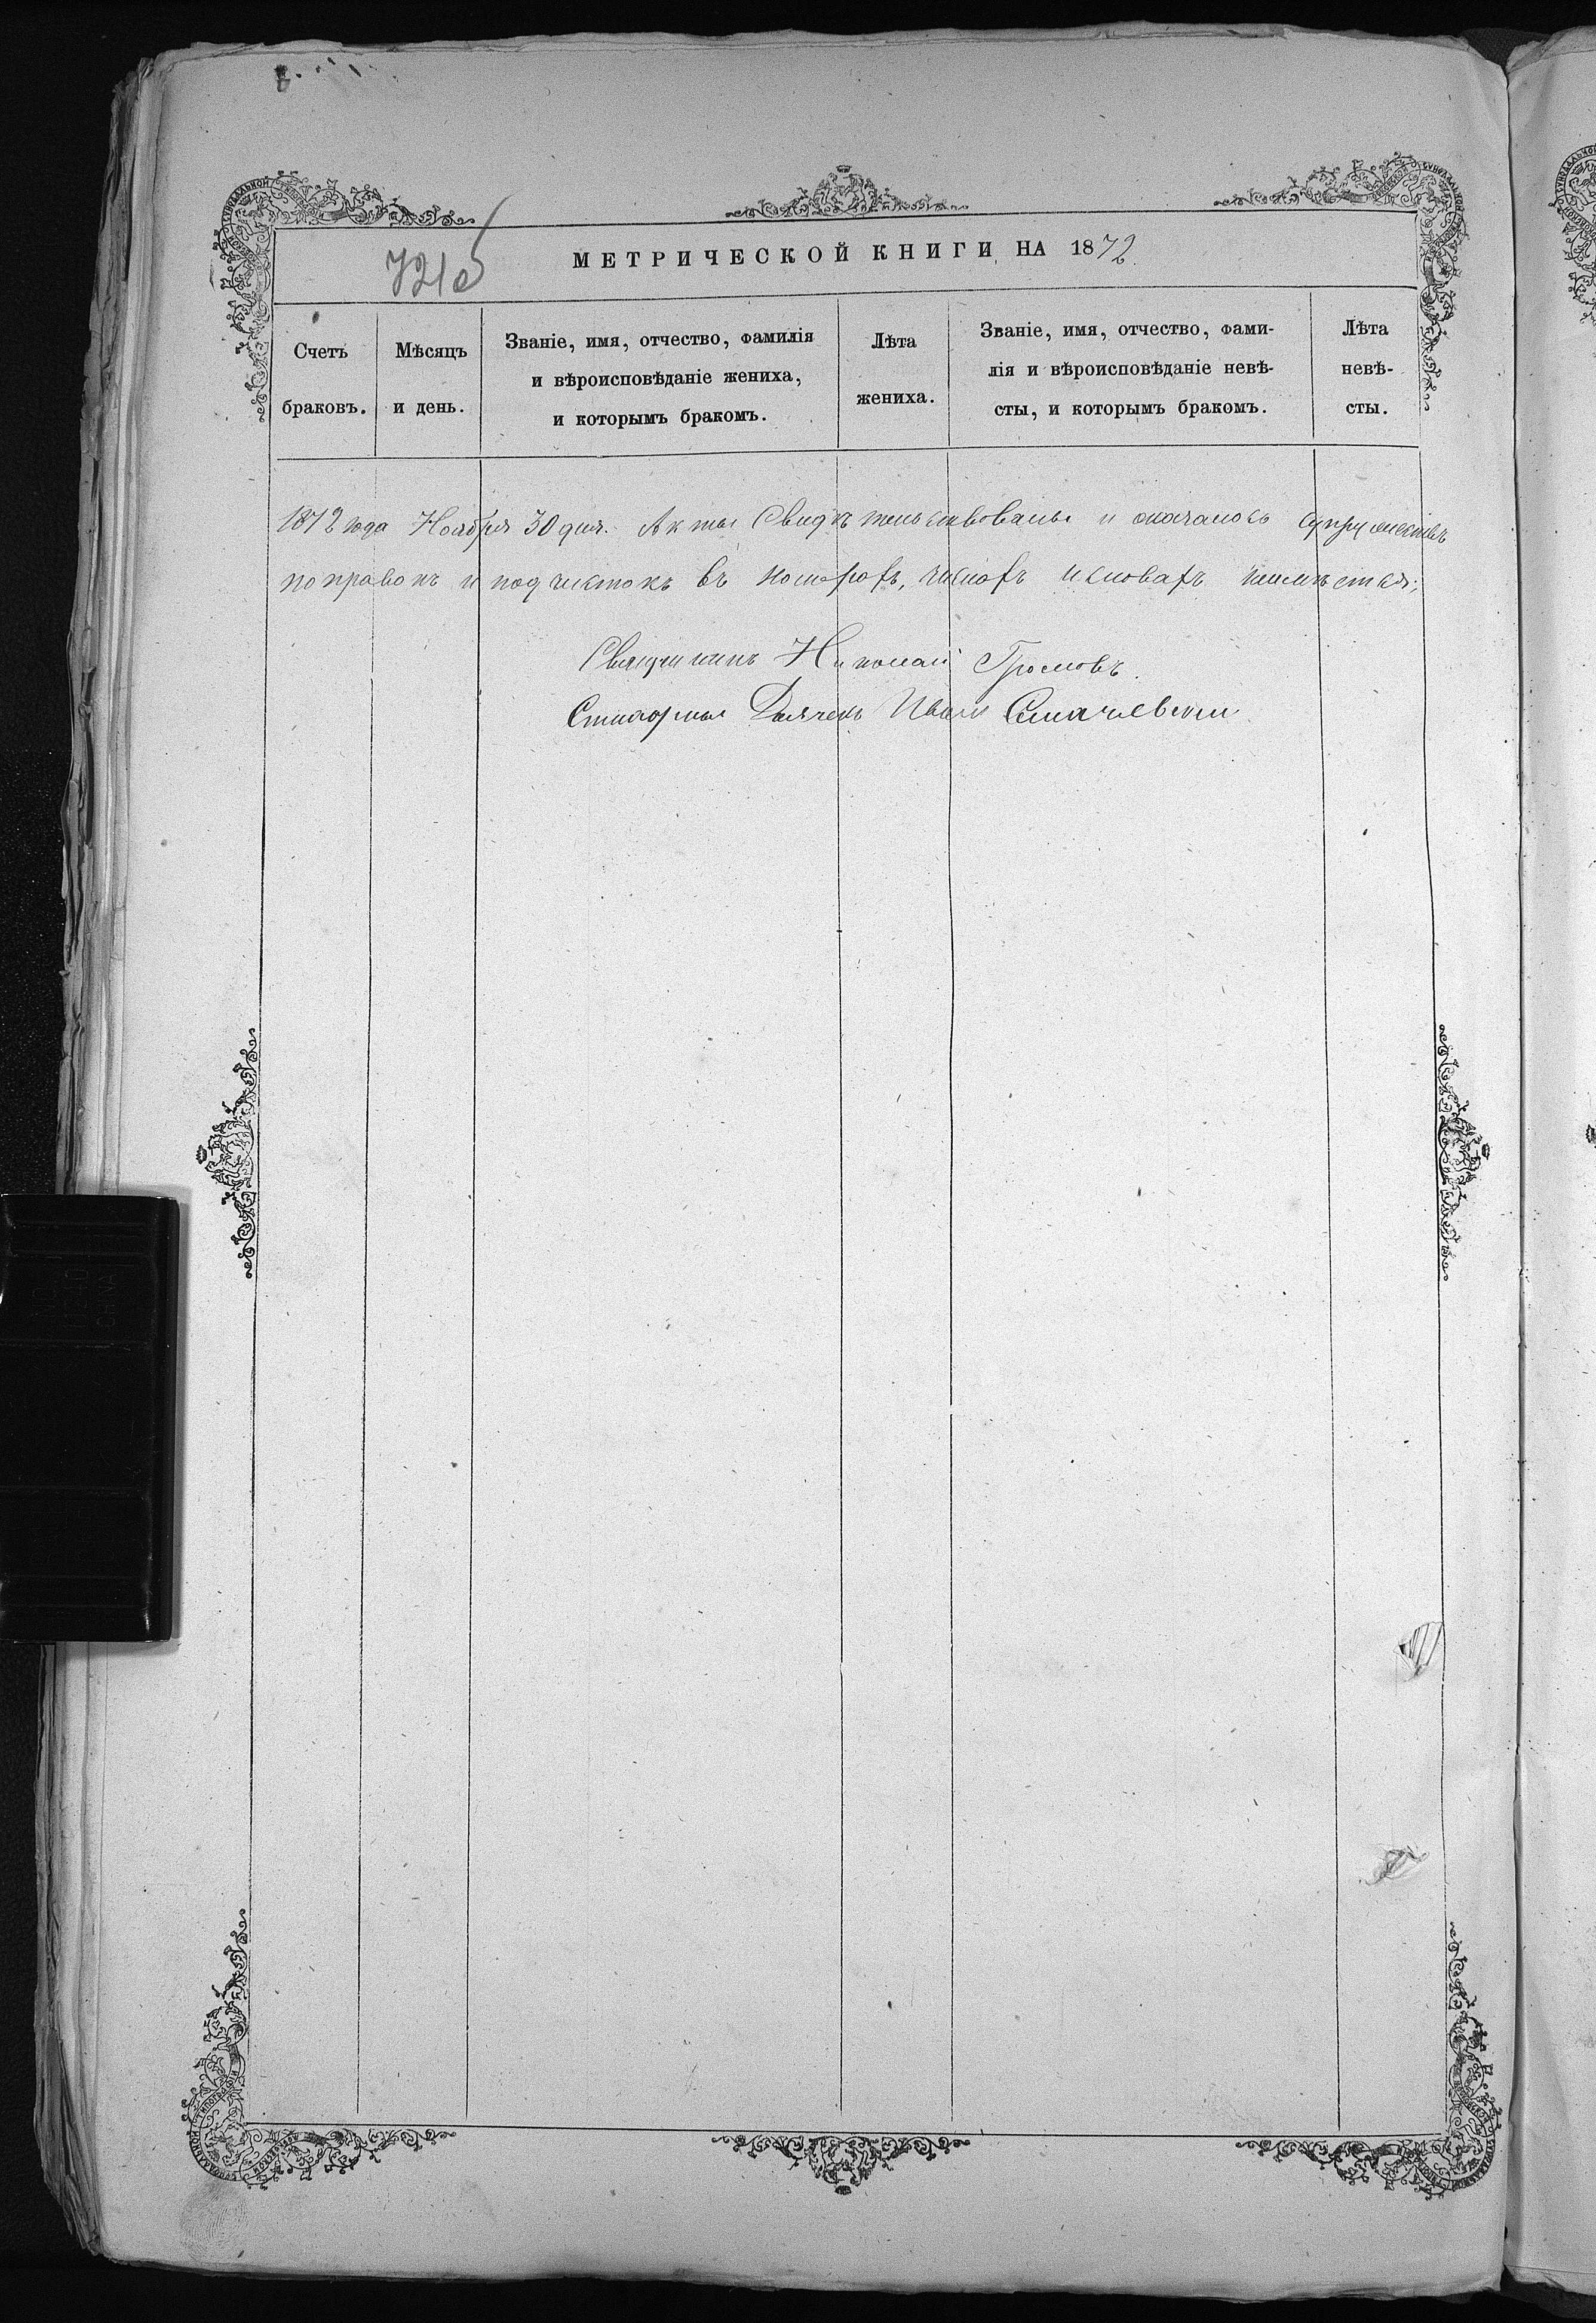 721об
МЕТРИЧЕСКОЙ КНИГИ НА 1872.
Счетъ браковъ.
Мѣсяцъ и день.
Званіе, имя, отчество, фамилія
и вѣроисповѣданіе жениха,
и которымъ бракомъ.
Лѣта жениха.
Званіе, имя, отчество, фами-
лія и вѣроисповѣданіе невѣ-
сты, и которымъ бракомъ.
Лѣта невѣ-
сты.
1872 года Ноября 30 дня. Акты Свидѣтельствованы и оказалось
поправокъ и подчистокъ въ номерахъ, числахъ и словахъ неимѣется;
Священникъ Николай Громовъ.
Стихарный Дьячекъ Иванъ